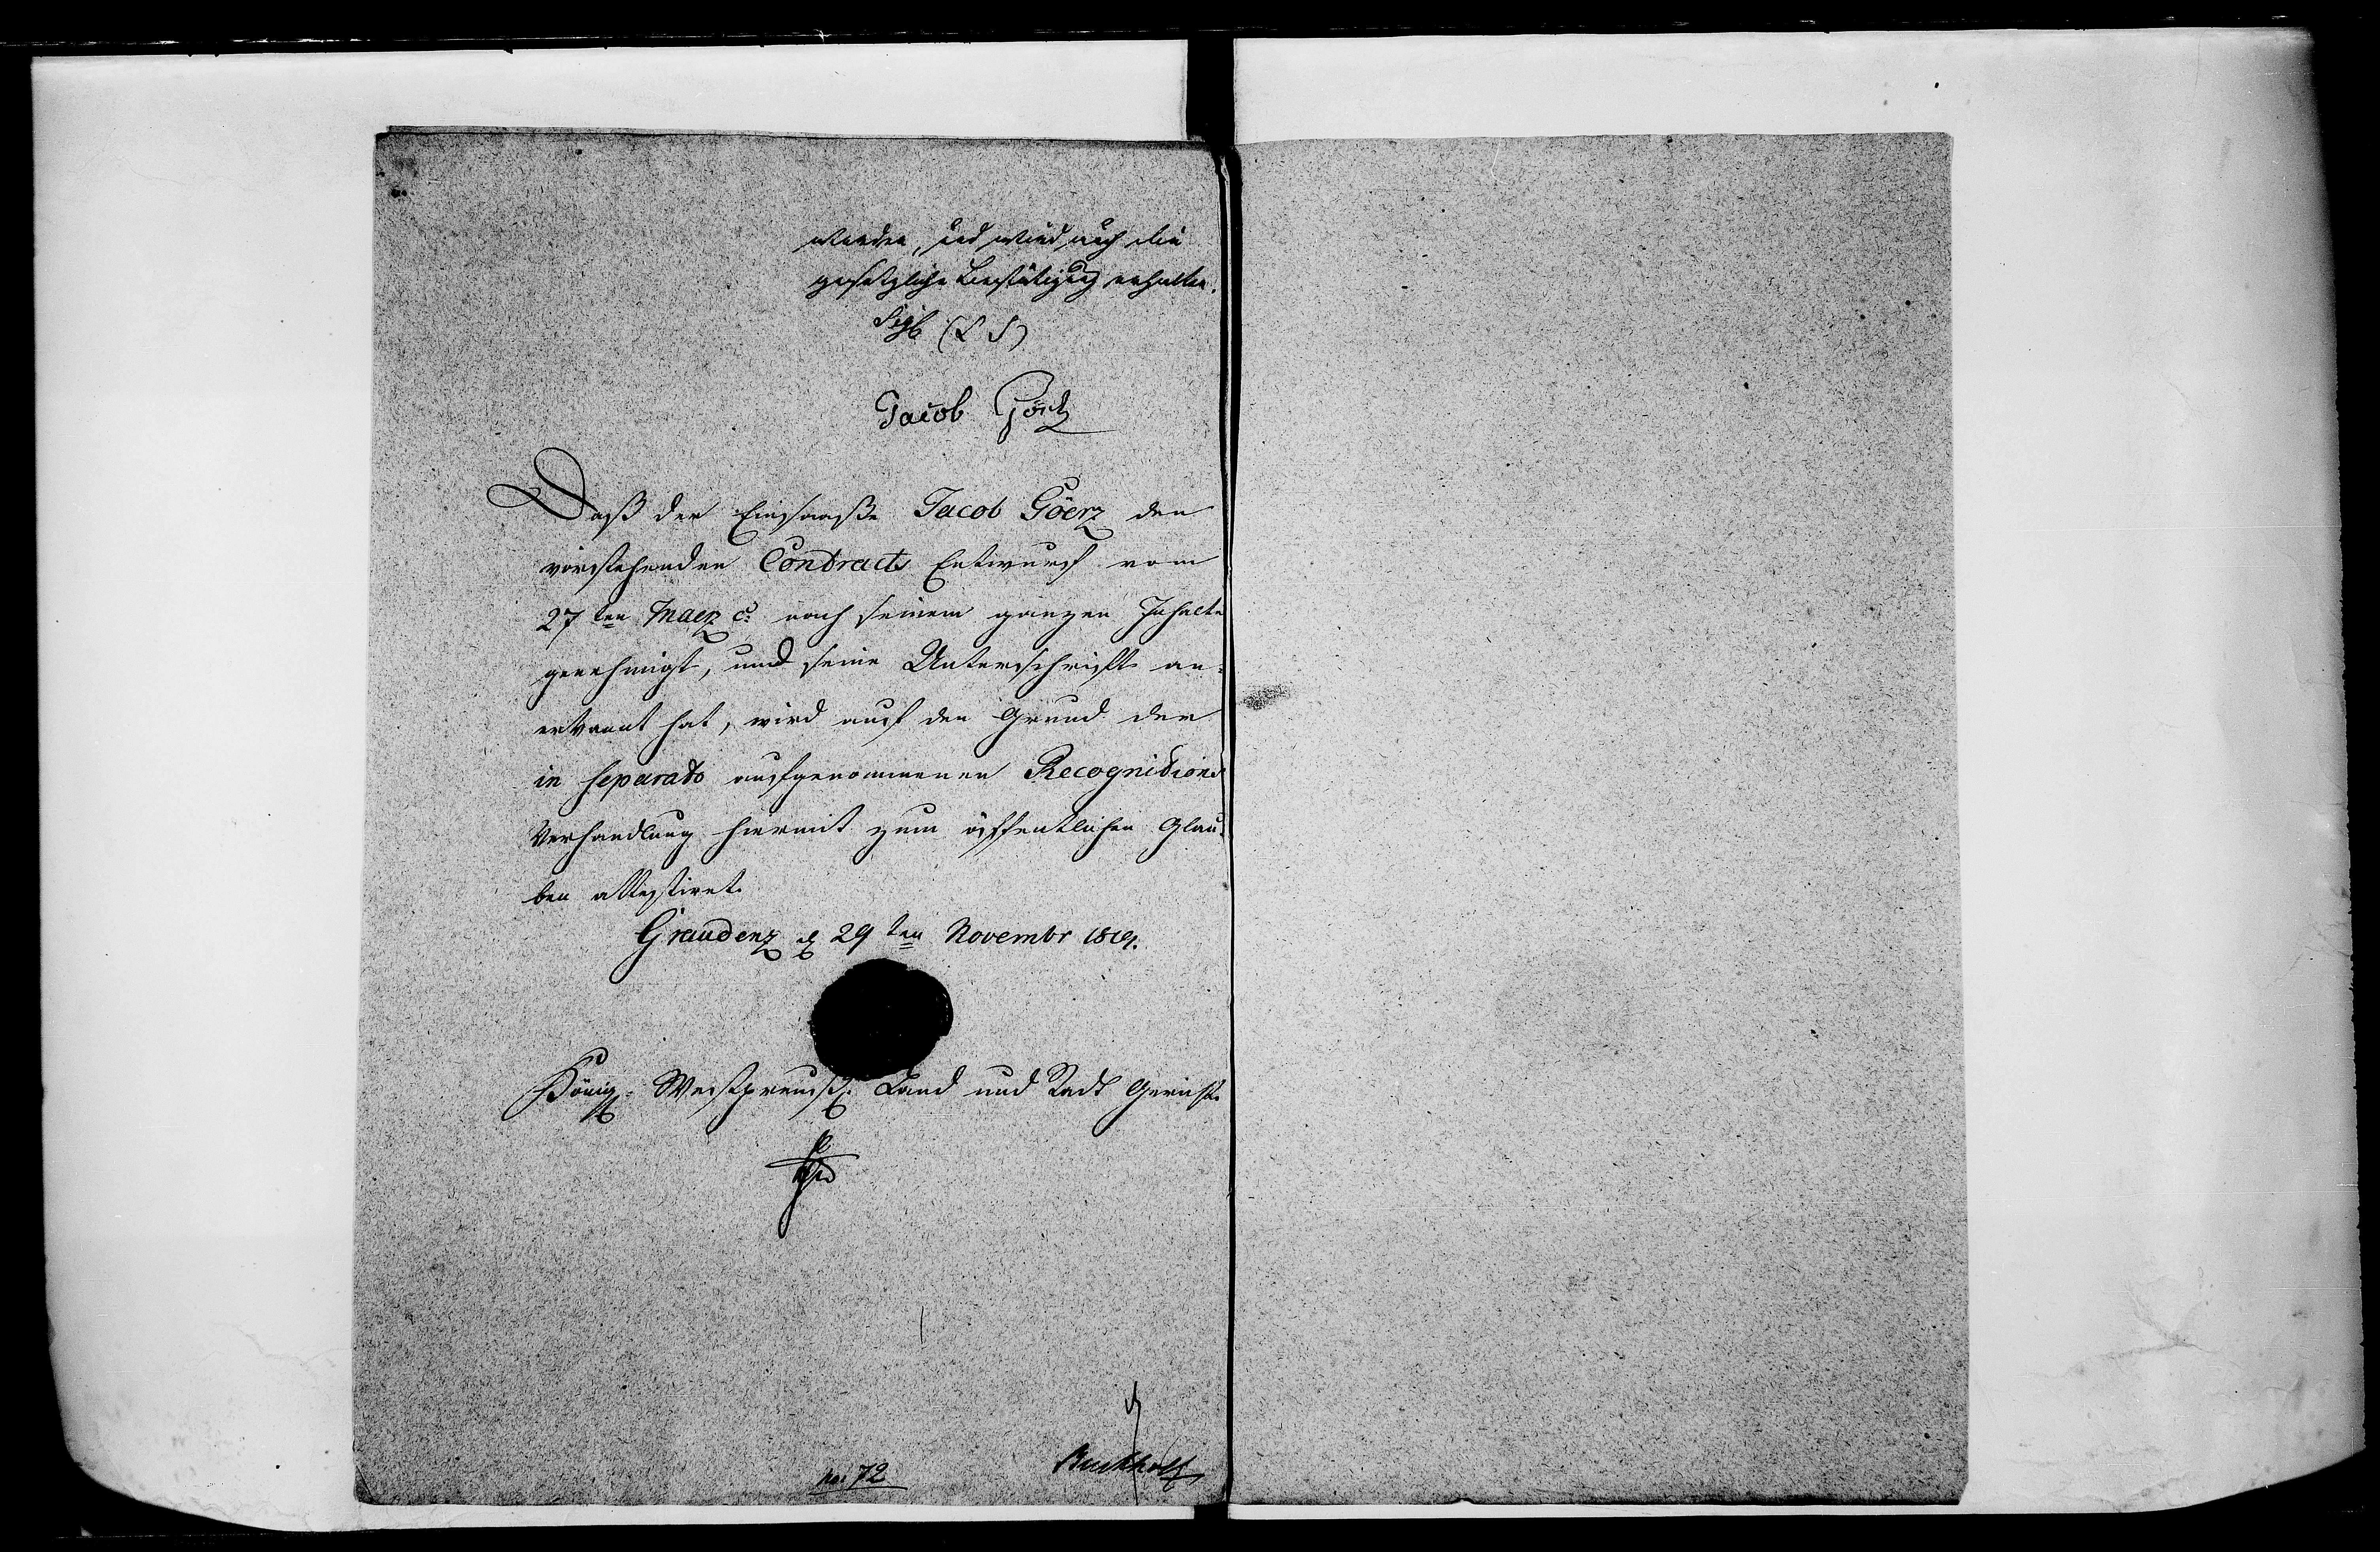 werden, und wird auch die
gesetzliche Bestätigung erhalten.
Sigl (L S)
Jacob Görtz
Daß der Einsaaße Jacob Göerz den
vorstehenden Contracts Entwurf vom
27ten Maerz c: nach seinem ganzen Inhalte
genehmigt, und seine Unterschrift an-
erkannt hat, wird auf den Grund der
in separato aufgenommenen Recognitions
Verhandlung hiermit zum öffentlichen Glau-
ben attestiret.
Graudenz d 29ten Novembr 1819.
Königl. Westpreuß. Land und Stadt Gericht
no: 72
Buchholtz